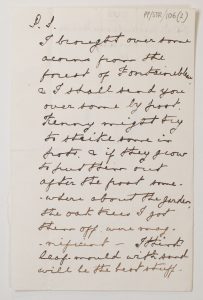 PP/STR/106(2)
P.S.
I brought over some
acorns from the
forest of Fontainebleau
& I shall send you
over some by post.
Kenny might try
to strike some in
pots. & if they grow
to put them out
after the frost some-
-where about the garden.
the oak trees I got
them off were mag-
nificent — I think
leaf mould with sand
will be the best stuff.